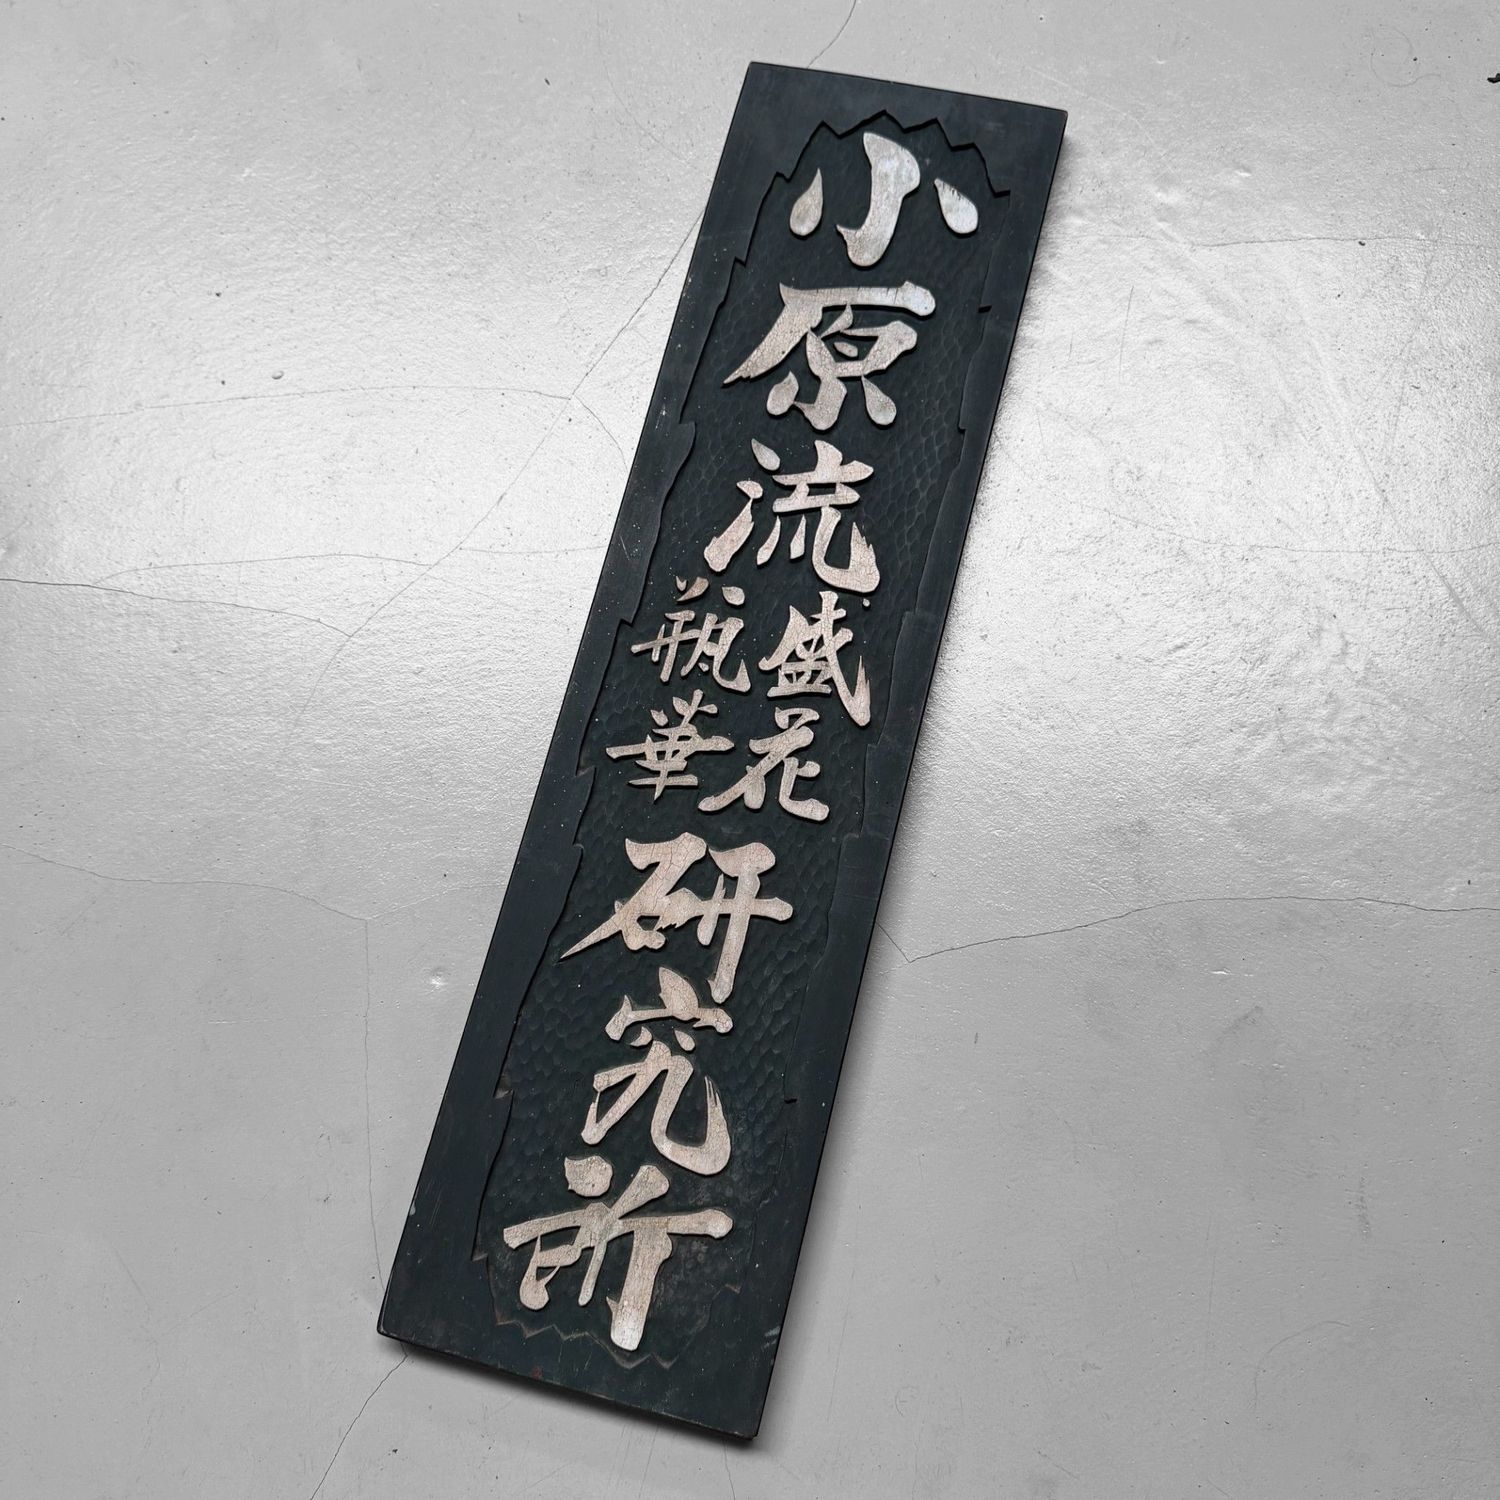 小原流
盛花
瓶華
研究所